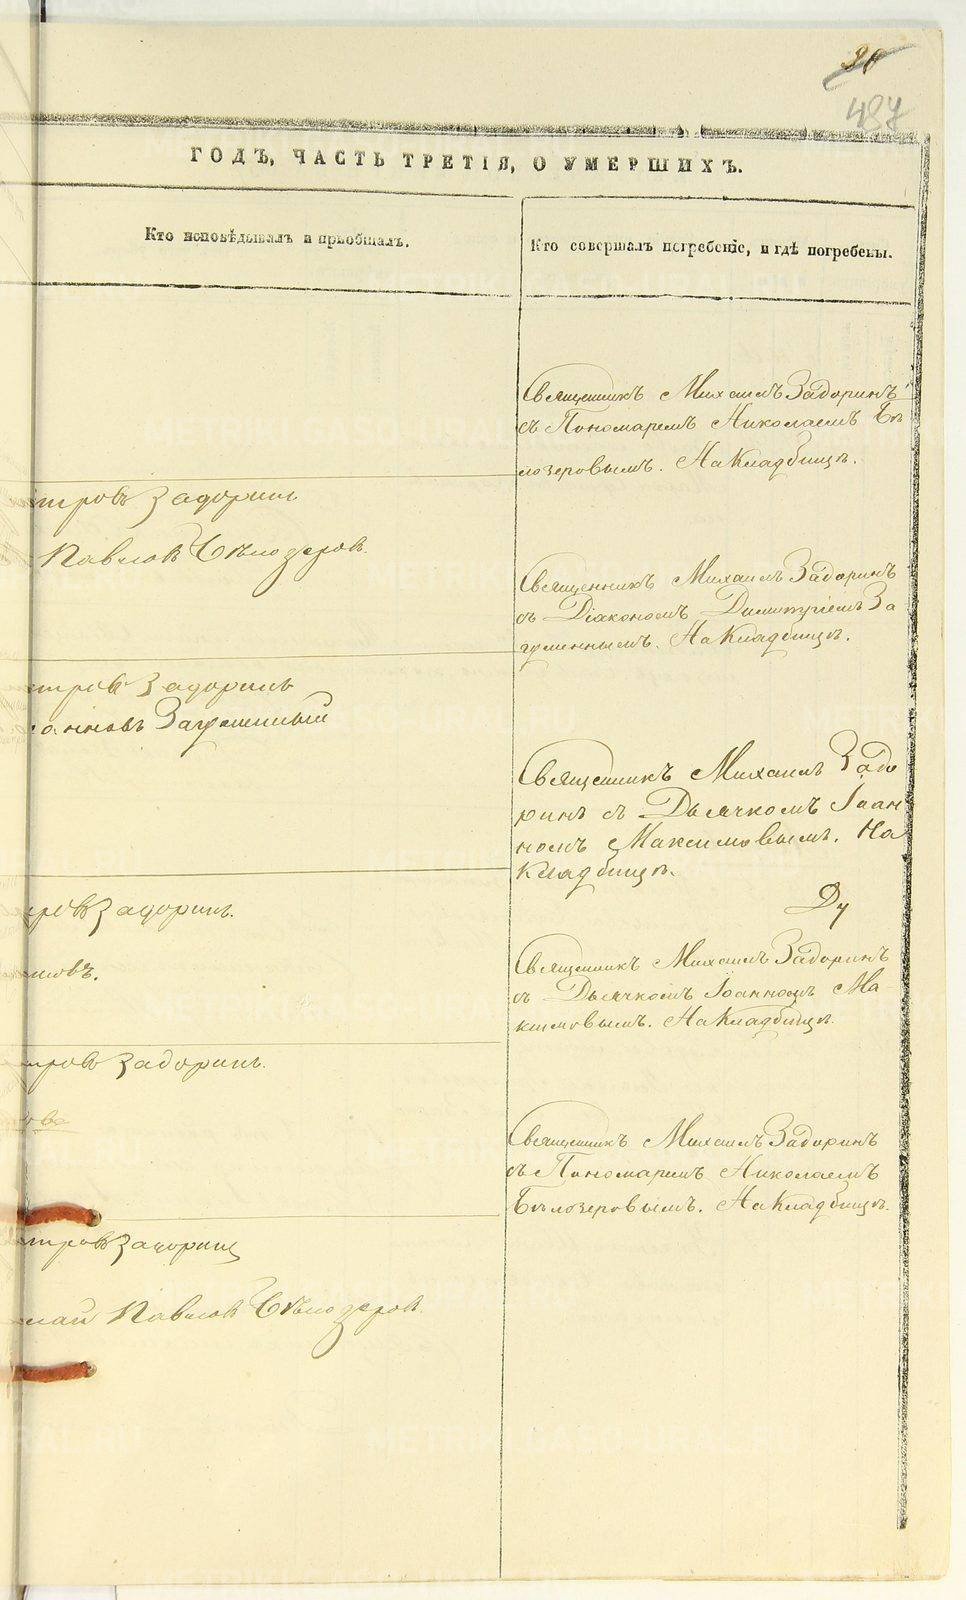 30
487
ГОДЪ, ЧАСТЬ ТРЕТІЯ, О УМЕРШИХЪ.
Кто исповѣдывалъ и пріобщалъ.
Кто совершалъ погребеніе, и гдѣ погребены.
Священникъ Михаилъ Задоринъ
съ Пономаремъ Николаемъ Бѣ
лозеровымъ. На Кладбищѣ.
тровъ Задоринъ
Павловъ Бѣлозеровъ.
Священникъ Михаилъ Задоринъ
съ Діакономъ Димитріемъ За
гуменнымъ. На Кладбищѣ.
тровъ Задоринъ
оанновъ Загуменный
Священникъ Михаилъ Задо
ринъ съ Дьячкомъ Іоан
номъ Максимовымъ. На
Кладбищѣ.
ровъ Задоринъ.
имовъ.
Священникъ Михаилъ Задоринъ
съ Дьячкомъ Іоанномъ Ма
ксимовымъ. На Кладбищѣ.
тровъ Задоринъ.
Священникъ Михаилъ Задоринъ
съ Пономаремъ Николаемъ
Бѣлозеровымъ. На Кладбищѣ.
тровъ Задоринъ
лай Павловъ Бѣлозеровъ.
METRIKI.GASO-URAL.RU